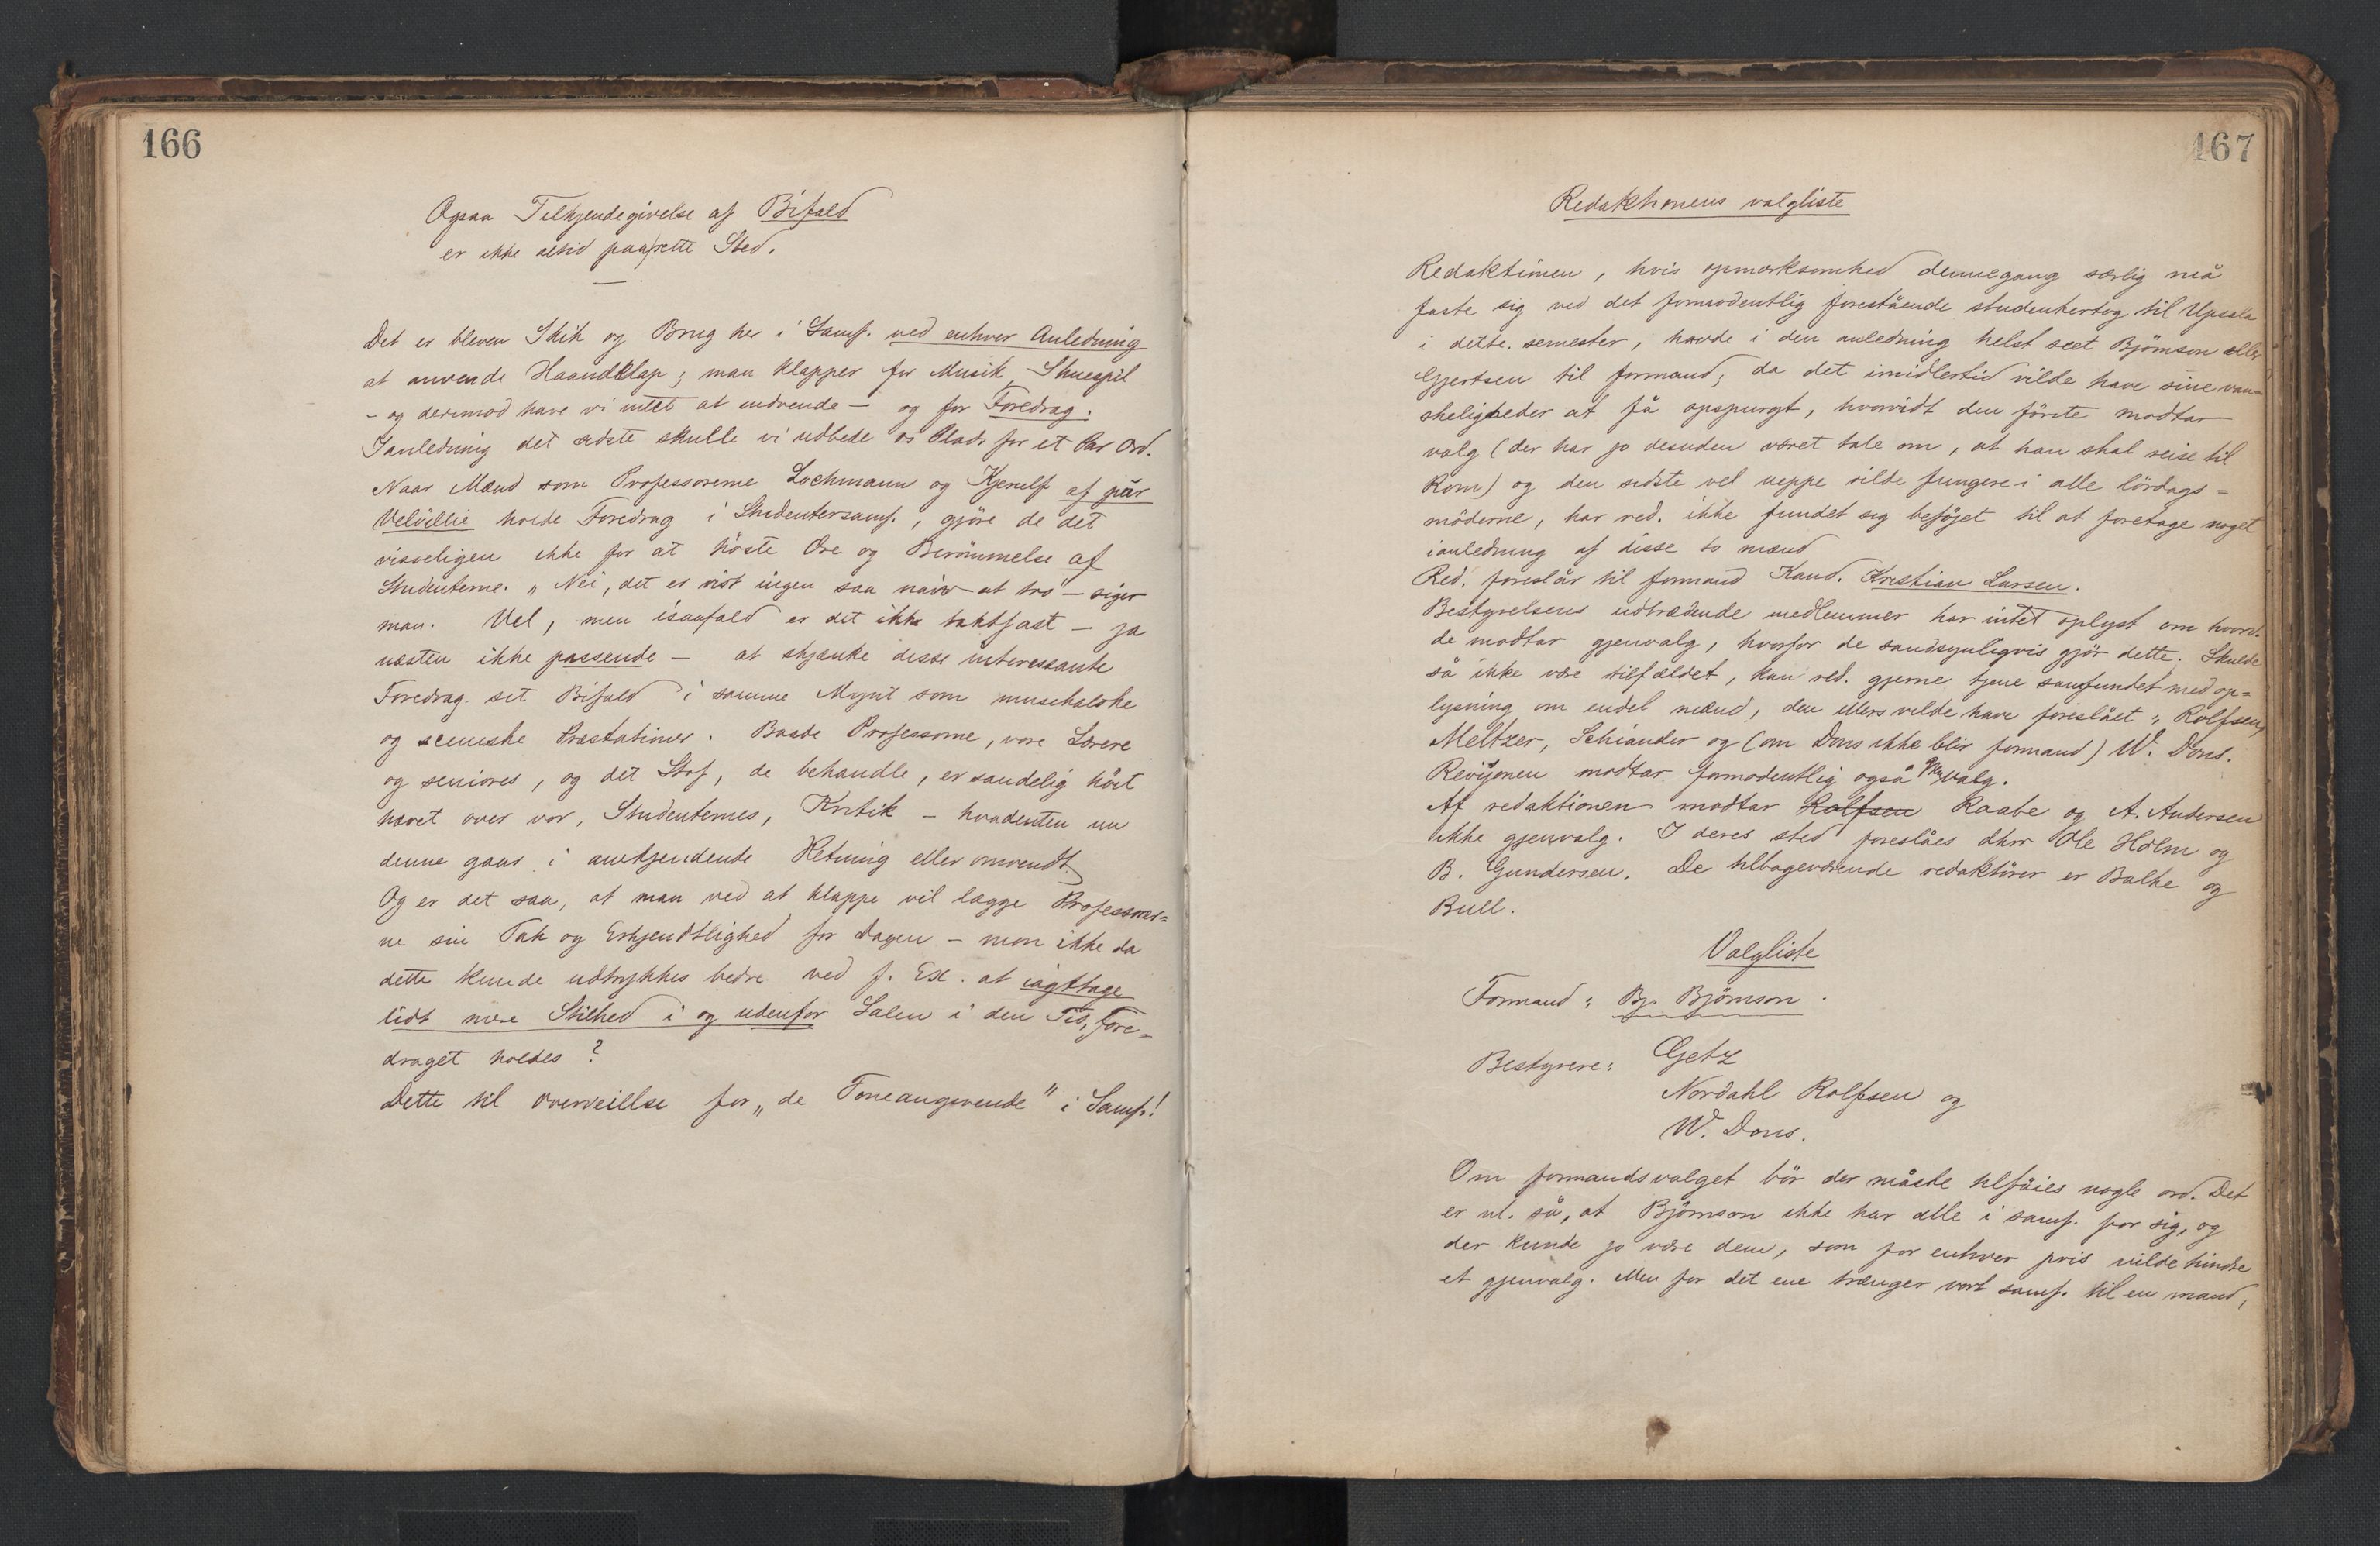 166
Ogsaa Tilkjendegivelse af Bifald
er ikke altid paa rette Sted.
Det er bleven Skik og Brug her i Samf. ved enhver Anledning
at anvende Haandklap; man klapper for Musik, Skuespil
- og derimod have vi intet at indvende - og for Foredrag.
I anledning det sidste skulle vi udbede os Plads for et Par Ord.
Naar Mænd som Professorerne Lochmann og Kjerulf af pür
Velvillie holde Foredrag i Studentersamf., gjøre de det
visseligen ikke for at höste Ære og Berömmelse af
Studenterne. „Nei, det er vist ingen saa naiv at tro" - siger
man. Vel, men isaafald er det ikke taktfast - ja
næsten ikke passende - at skjænke disse interessante
Foredrag sit Bifald i samme Mynt som musikalske
og sceniske Præstationer. Baade Professorne, vore Lærere
og seniores, og det Stof, de behandle, er sandelig höit
hævet over vor, Studenternes, Kritik - hvadenten nu
denne gaar i anerkjendende Retning eller omvendt.
Og er det saa, at man ved at klappe vil lægge Professorer=
ne sin Tak og Erkjendtlighed for Dagen - mon ikke da
dette kunde udtrykkes bedre ved f. Ex. at iagttage
lidt mere Stilhed i og udenfor Salen i den Tid, Fore=
draget holdes?
Dette til Overveielse for „de Toneangivende" i Samf.!
167
Redaktionens valgliste
Redaktionen, hvis opmærksomhed dennegang særlig må
fæste sig ved det formodentlig forestående studentertog til Upsala
i dette semester, havde i den anledning helst seet Björnson eller
Gjertsen til formand; da det imidlertid vilde have sine van=
skeligheder at få opspurgt, hvorvidt den förste modtar
valg (der har jo desuden været tale om, at han skal reise til
Rom) og den sidste vel neppe vilde fungere i alle lördags=
möderne, har red. ikke fundet sig beföjet til at foretage noget
i anledning af disse to mænd
Red. foreslår til formand Kand. Kristian Larsen.
Bestyrelsens udtrædende medlemmer har intet oplyst om hvorv.
de modtar gjenvalg, hvorfor de sandsynligvis gjör dette. Skulde
så ikke være tilfældet, kan red. gjerne tjene samfundet med op=
lysning om endel mænd, den ellers vilde have foreslået: Rolfsen,
Meltzer, Schiander og (om Dons ikke blir formand) W. Dons.
Revisjonen modtar formodentlig også gjenvalg.
Af redaktionen modtar Rolfsen Raabe og A. Andersen
ikke gjenvalg. I deres sted foreslåes dhrr Ole Holm og
B. Gundersen. De tilbageværende redaktörer er Balke og
Bull.
Valgliste
Formand: Bj. Björnson.
Bestyrere: Getz
Nordahl Rolfsen og
W. Dons.
Om formandsvalget bör der måske tilföies nogle ord. Det
er nl. så, at Björnson ikke har alle i samf. for sig, og
der kunde jo være dem, som for enhver pris vilde hindre
et gjenvalg. Men for det ene trænger vort samf. til en mand,